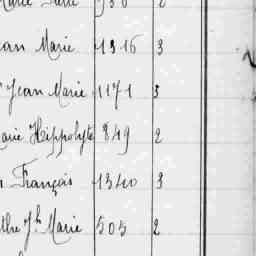 Marie 986 2
Jean Marie 1316 3
Jean Marie 1171 3
Marie Hippolyte 849 2
François 1340 3
Jh Marie 505 2